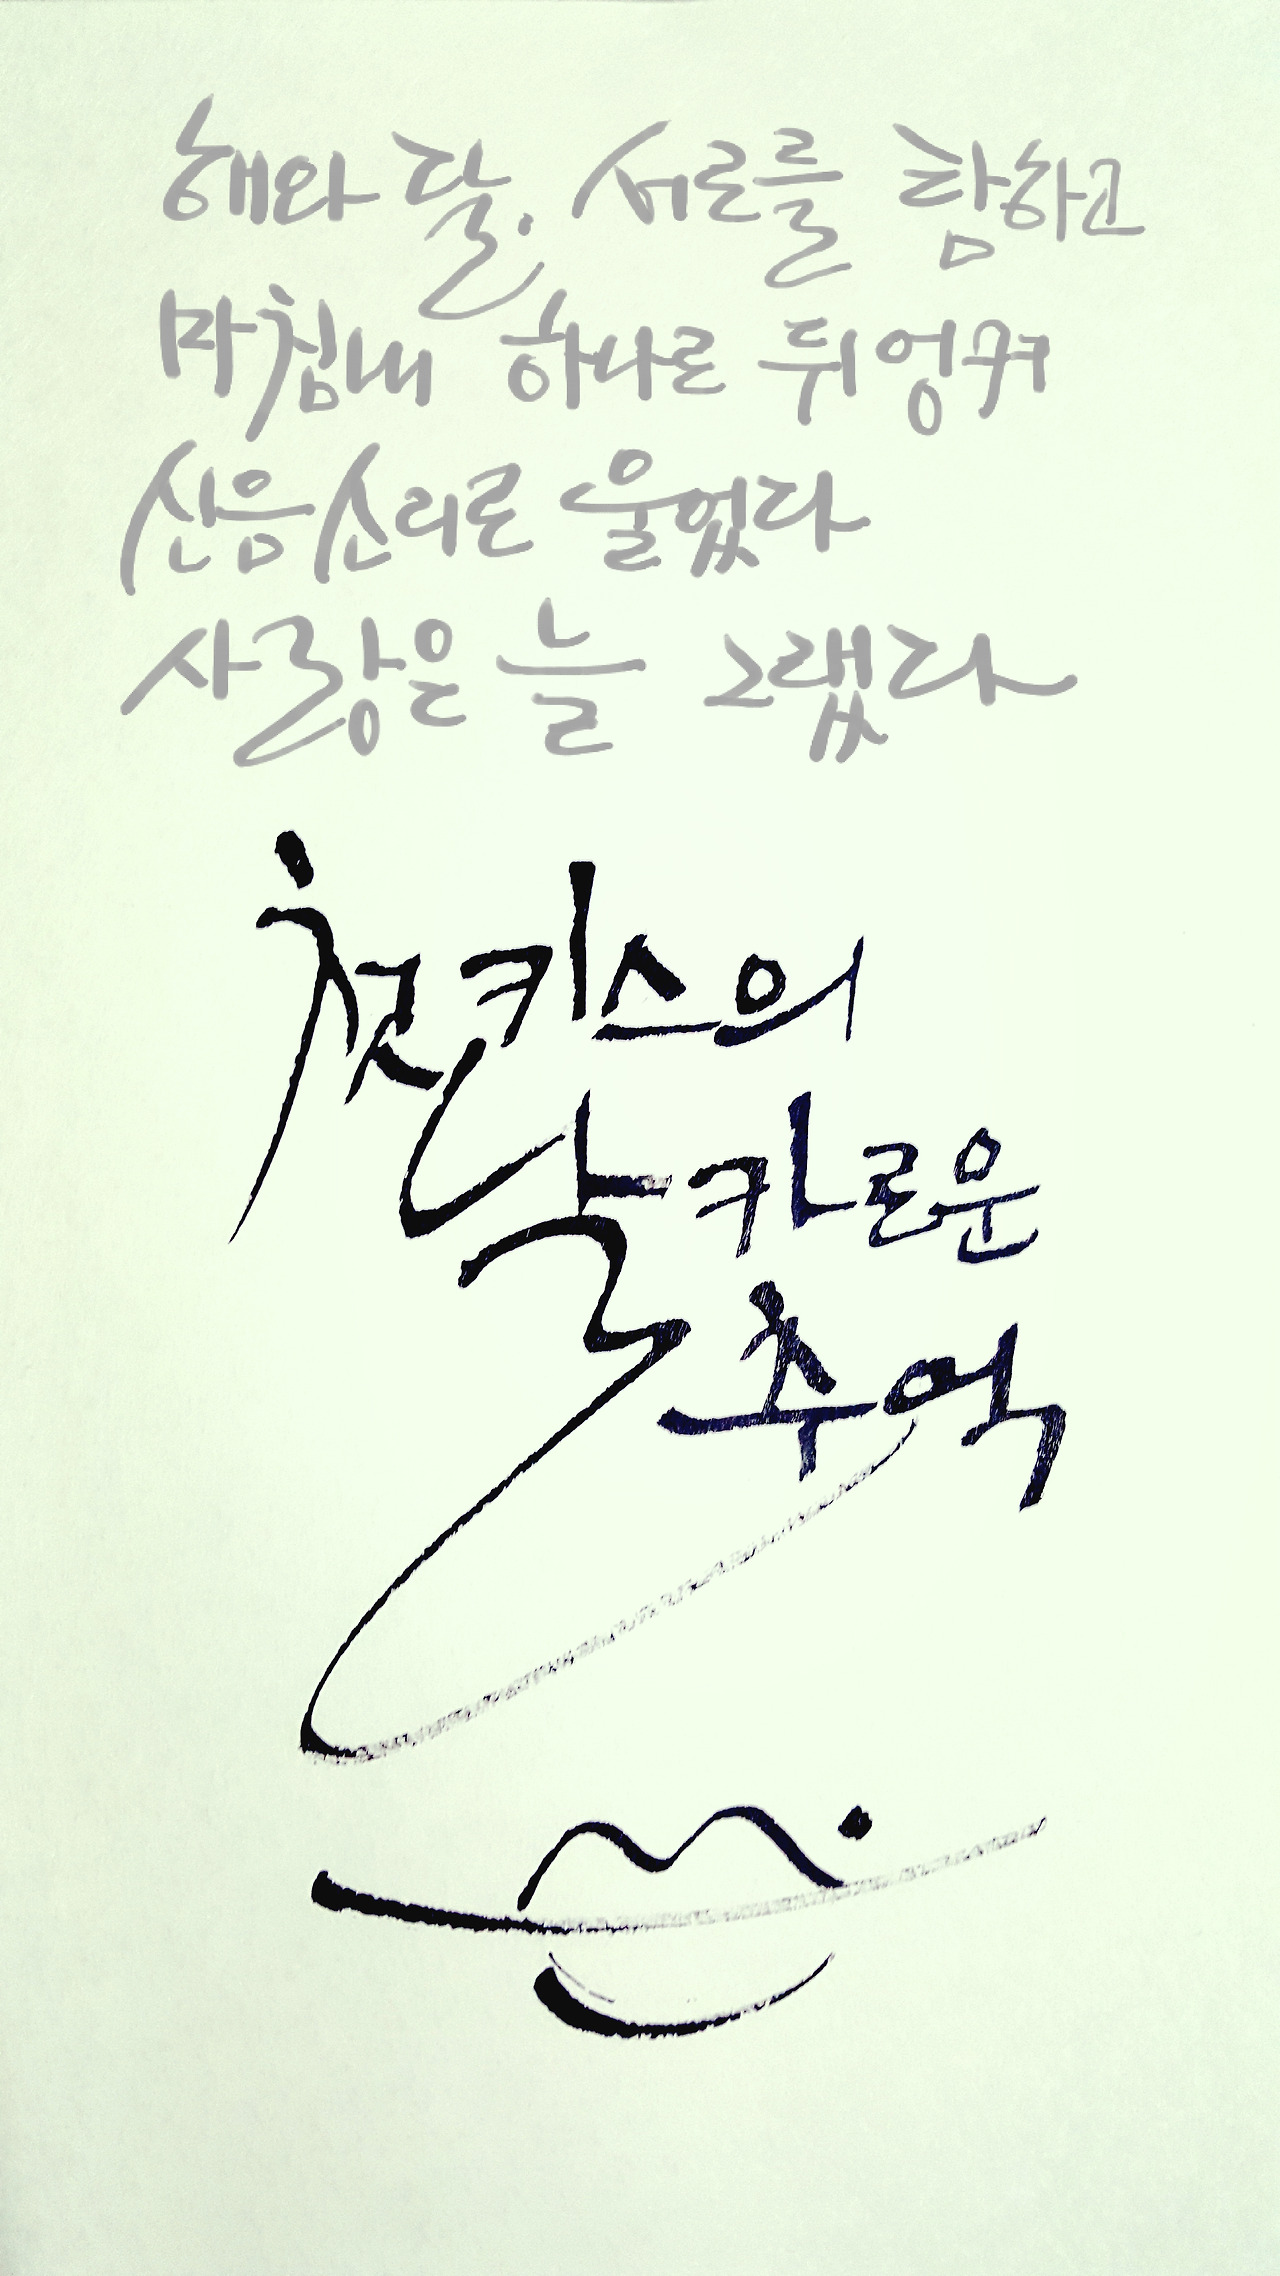 해와 달. 서로를 탐하고
마침내 하나로 뒤엉켜
신음소리로 울었다
사랑은 늘 그랬다
첫키스의
날카로운
추억